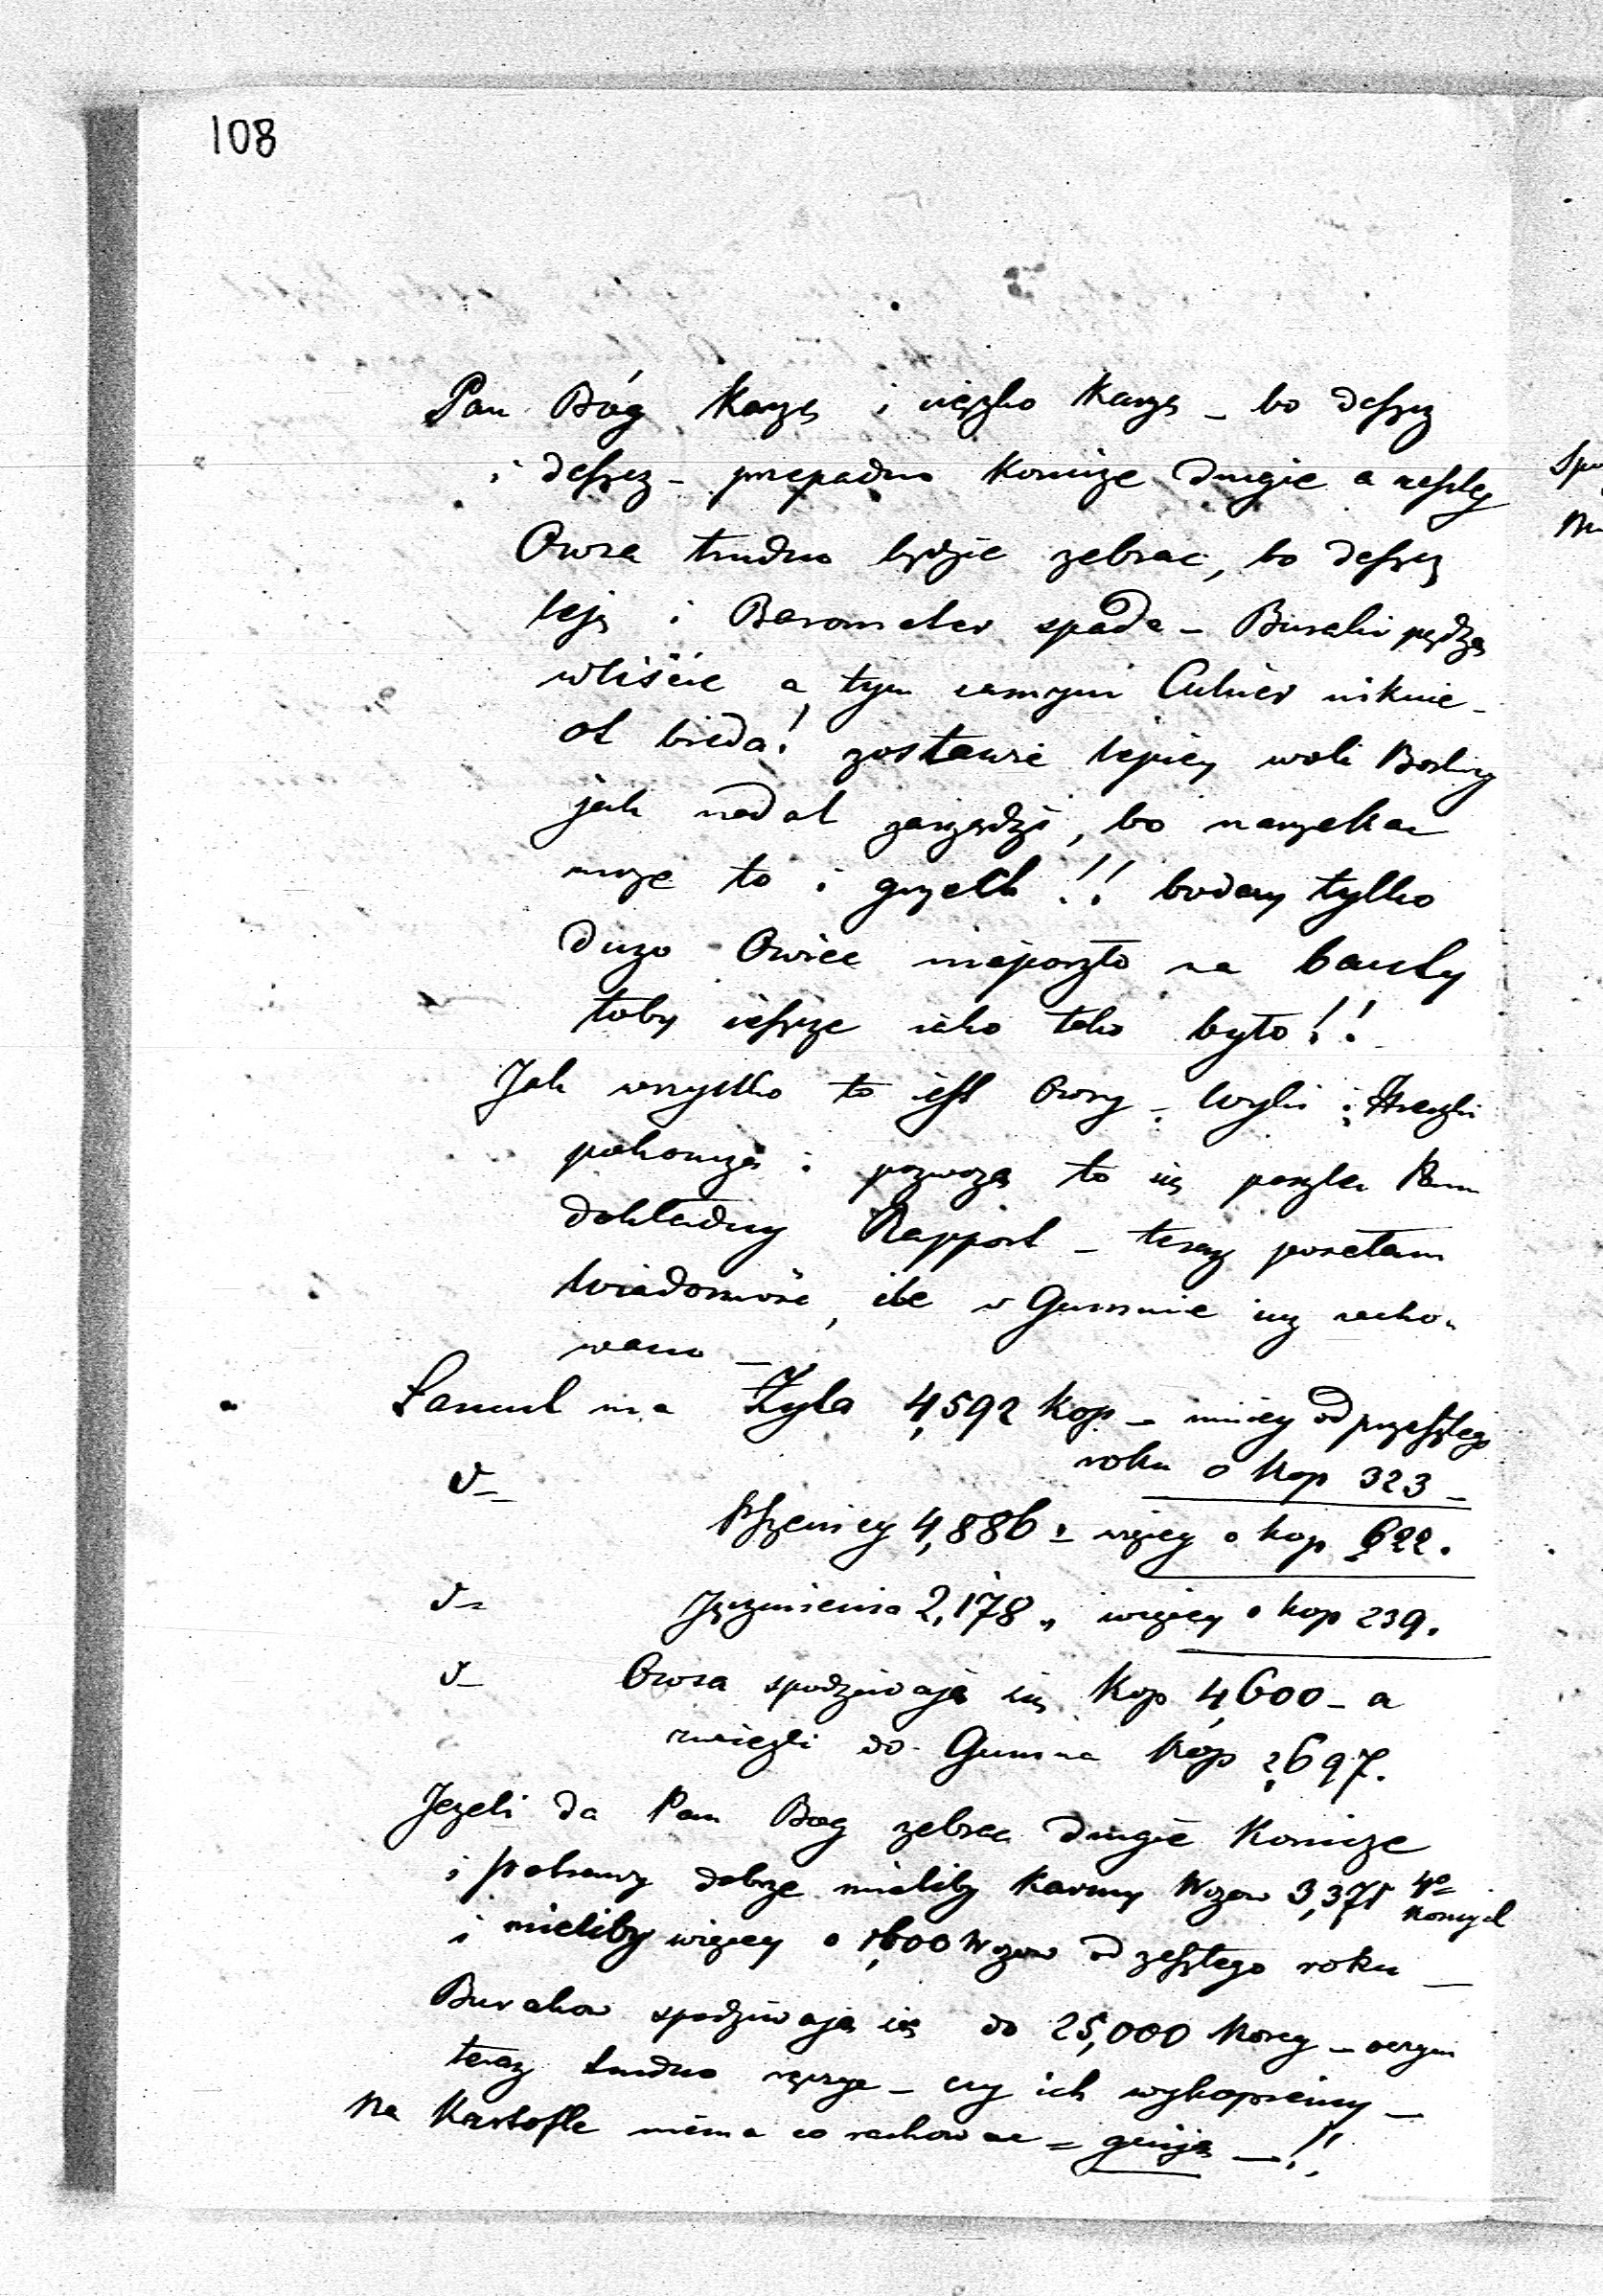 108
Pan Bóg Karze i ciężko Karze – bo deszcz
i deszcz – przepadno Konicze drugie a reszty
Owsa trudno będzie zebrac, bo deszcz
leje i Barometer spada – Buraki pędzą
w liście a tym samym Cukier niknie –
ot bieda! zostawić lepiey woli Boskiey
jak nadal zarządzi, bo narzekac
moze to i grzech!! boday tylko
duzo Owiec nieposzło na
toby ieszcze iako tako było!!
Jak wszystko to iest Owsy – Wyki i Hreczki
pokonczą i pozwożą to się poszle Panu
dokładny Rapport – teraz posełam
Wiadomość, ile w Gumnie iuz racho-
wano –
Łancut ma Żyta 4,592 kop – mniey od przeszłego
roku o kop 323 –
d– Pszenicy 4,886 – więcy o kop 622.
d– Jęczmienia 2,178 „ więcy o kop 239.
d– Owsa spodziwają się Kop 4,600 – a
zwiezli do Gumna Kop 2697.
Jezeli da Pan Bog zebrac drugie Konicze
i Potrawy dobrze mieliby Karmy Wozow 3,371 4o
Konnych
i mieliby więcey o 1,600 Wozow od zeszłego roku –
Burakow spodziwają się do 25,000 Korcy – oczym
teraz trudno ręczyc – czy ich wykopiemy –
Na Kartofle niema co rachowac = gniją –!!